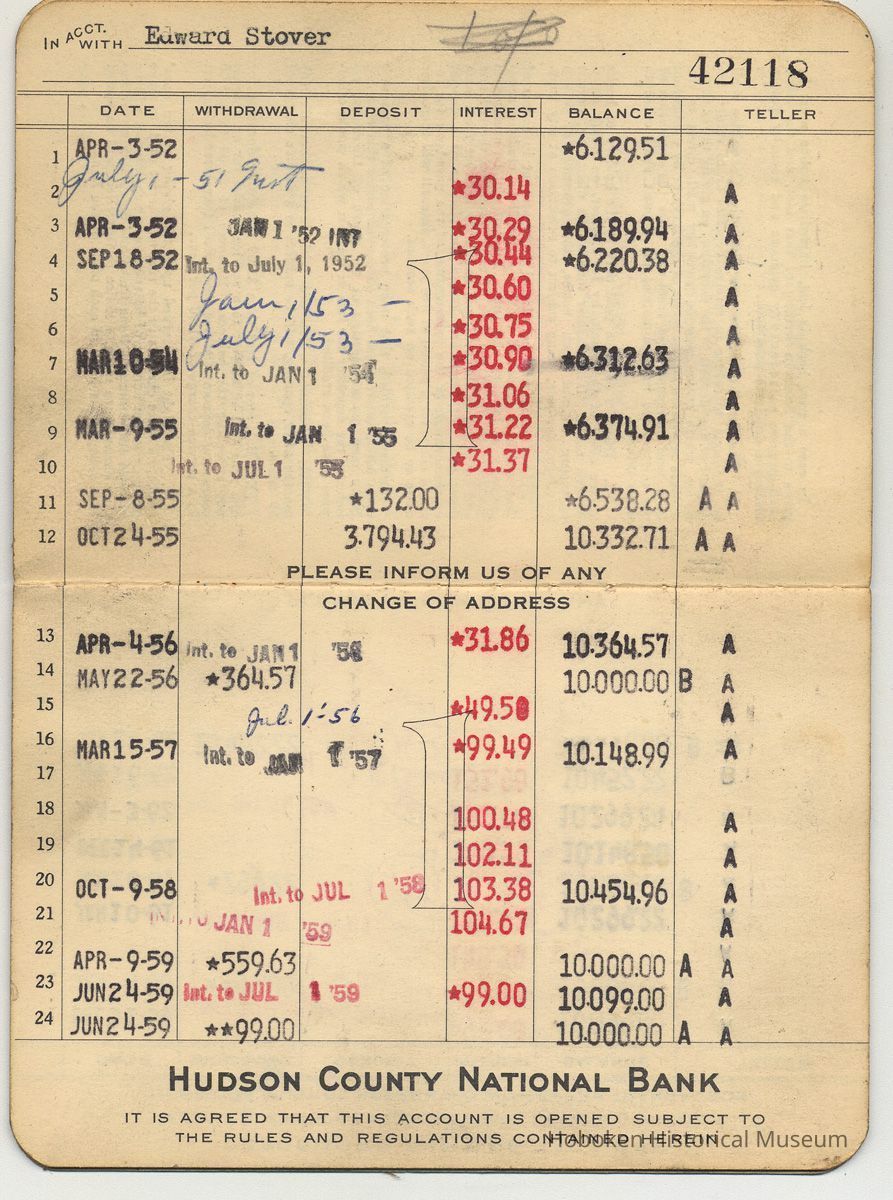 IN ACCT. WITH Edward Stover
42118
DATE WITHDRAWAL DEPOSIT INTEREST BALANCE TELLER
1 APR-3-52 *6.129.51 A
2 July 1 - 51 Inst *30.14 A
3 APR-3-52 JAN 1 '52 INT *30.29 *6.189.94 A
4 SEP18-52 Int. to July 1, 1952 *30.44 *6.220.38 A
5 Jan 1/53 - *30.60 A
6 July 1/53 - *30.75 A
7 MAR10-54 Int. to JAN 1 '54 *30.90 *6.312.63 A
8 *31.06 A
9 MAR-9-55 Int. to JAN 1 '55 *31.22 *6.374.91 A
10 Int. to JUL 1 '55 *31.37 A
11 SEP-8-55 *132.00 *6.538.28 A A
12 OCT24-55 3.794.43 10.332.71 A A
PLEASE INFORM US OF ANY
CHANGE OF ADDRESS
13 APR-4-56 Int. to JAN 1 '56 *31.86 10.364.57 A
14 MAY22-56 *364.57 10.000.00 B A
15 Jul. 1-'56 *49.50 A
16 MAR15-57 Int. to JAN 1 '57 *99.49 10.148.99 A
17
18 100.48 A
19 102.11 A
20 OCT-9-58 Int. to JUL 1 '58 103.38 10.454.96 A
21 Int. to JAN 1 '59 104.67 A
22 APR-9-59 *559.63 10.000.00 A A
23 JUN24-59 Int. to JUL 1 '59 *99.00 10.099.00 A
24 JUN24-59 **99.00 10.000.00 A A
HUDSON COUNTY NATIONAL BANK
IT IS AGREED THAT THIS ACCOUNT IS OPENED SUBJECT TO
THE RULES AND REGULATIONS CONTAINED HEREIN
Hoboken Historical Museum